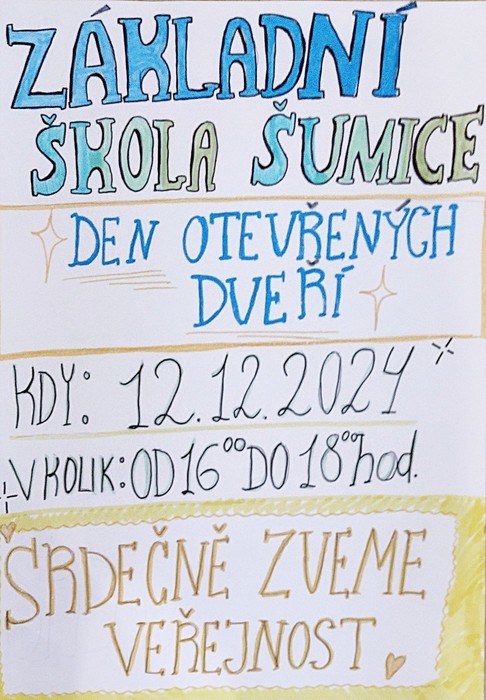 ZÁKLADNÍ
ŠKOLA ŠUMICE
DEN OTEVŘENÝCH
DVEŘÍ
KDY: 12.12.2024
V KOLIK: OD 16⁰⁰ DO 18⁰⁰ hod.
SRDEČNĚ ZVEME
VEŘEJNOST